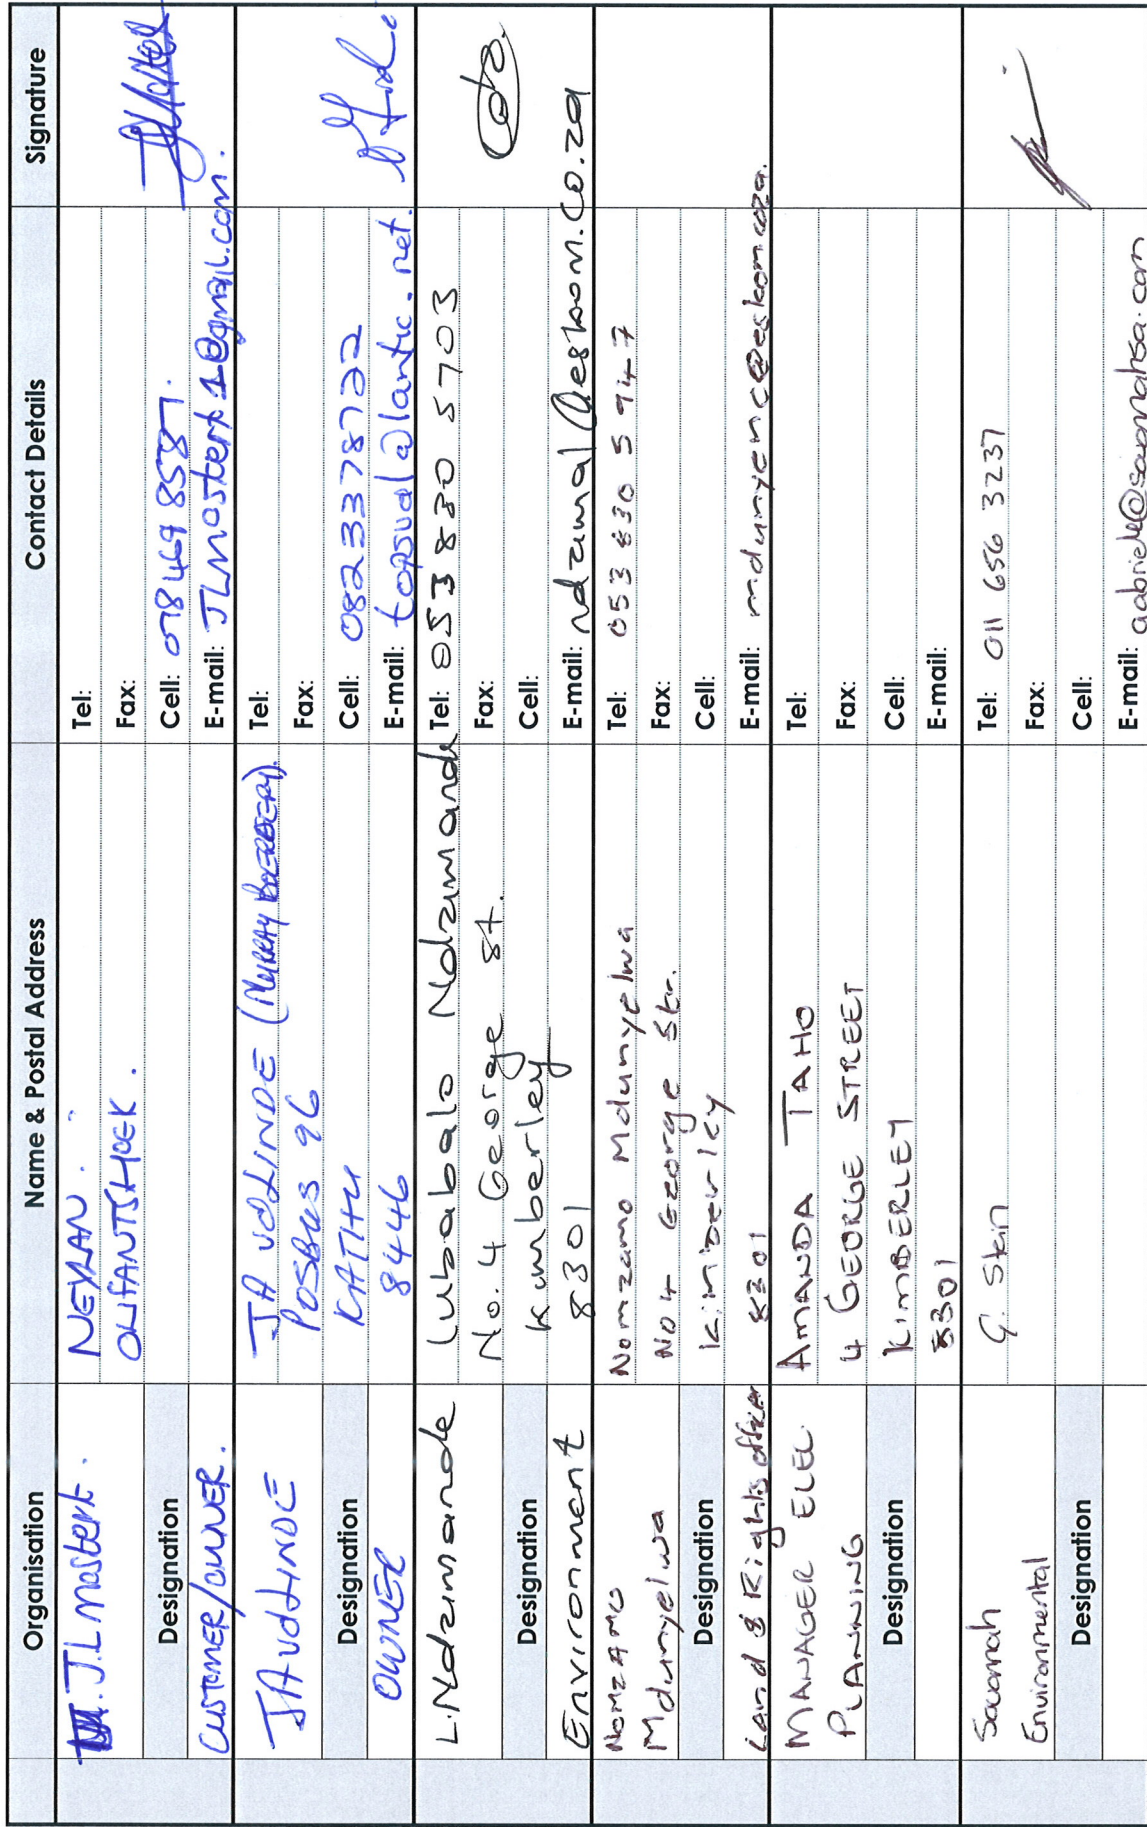 Organisation
Name & Postal Address
Contact Details
Signature
J.L Mostert.
Designation
CUSTOMER/OWNER.
NEYLAN.
OLIFANTSHOEK.
Tel:
Fax:
Cell: 078 469 8587.
E-mail: JLmostert1@gmail.com.
JA vd LINDE
Designation
OWNER
JA vd LINDE (MURRAY
POSBUS 96
KATHU
8446
Tel:
Fax:
Cell: 0823378722
E-mail: topsvdl@lantic.net.
L. Ndzimande
Designation
Environment
Lubabalo Ndzimande
No. 4 George St.
Kimberley
8301
Tel: 053 830 5703
Fax:
Cell:
E-mail: ndzimal@eskom.co.za
NOMZAMO
Mdunyelwa
Designation
Land & Rights officer
Nomzamo Mdunyelwa
No 4 George Str.
Kimberley
8301
Tel: 053 830 5947
Fax:
Cell:
E-mail: mdunyenc@eskom.co.za.
MANAGER ELEC.
PLANNING
Designation
AMANDA TAHO
4 GEORGE STREET
KIMBERLEY
8301
Tel:
Fax:
Cell:
E-mail:
Savannah
Environmental
Designation
G. Stein
Tel: 011 656 3237
Fax:
Cell:
E-mail: gabriele@savannahsa.com